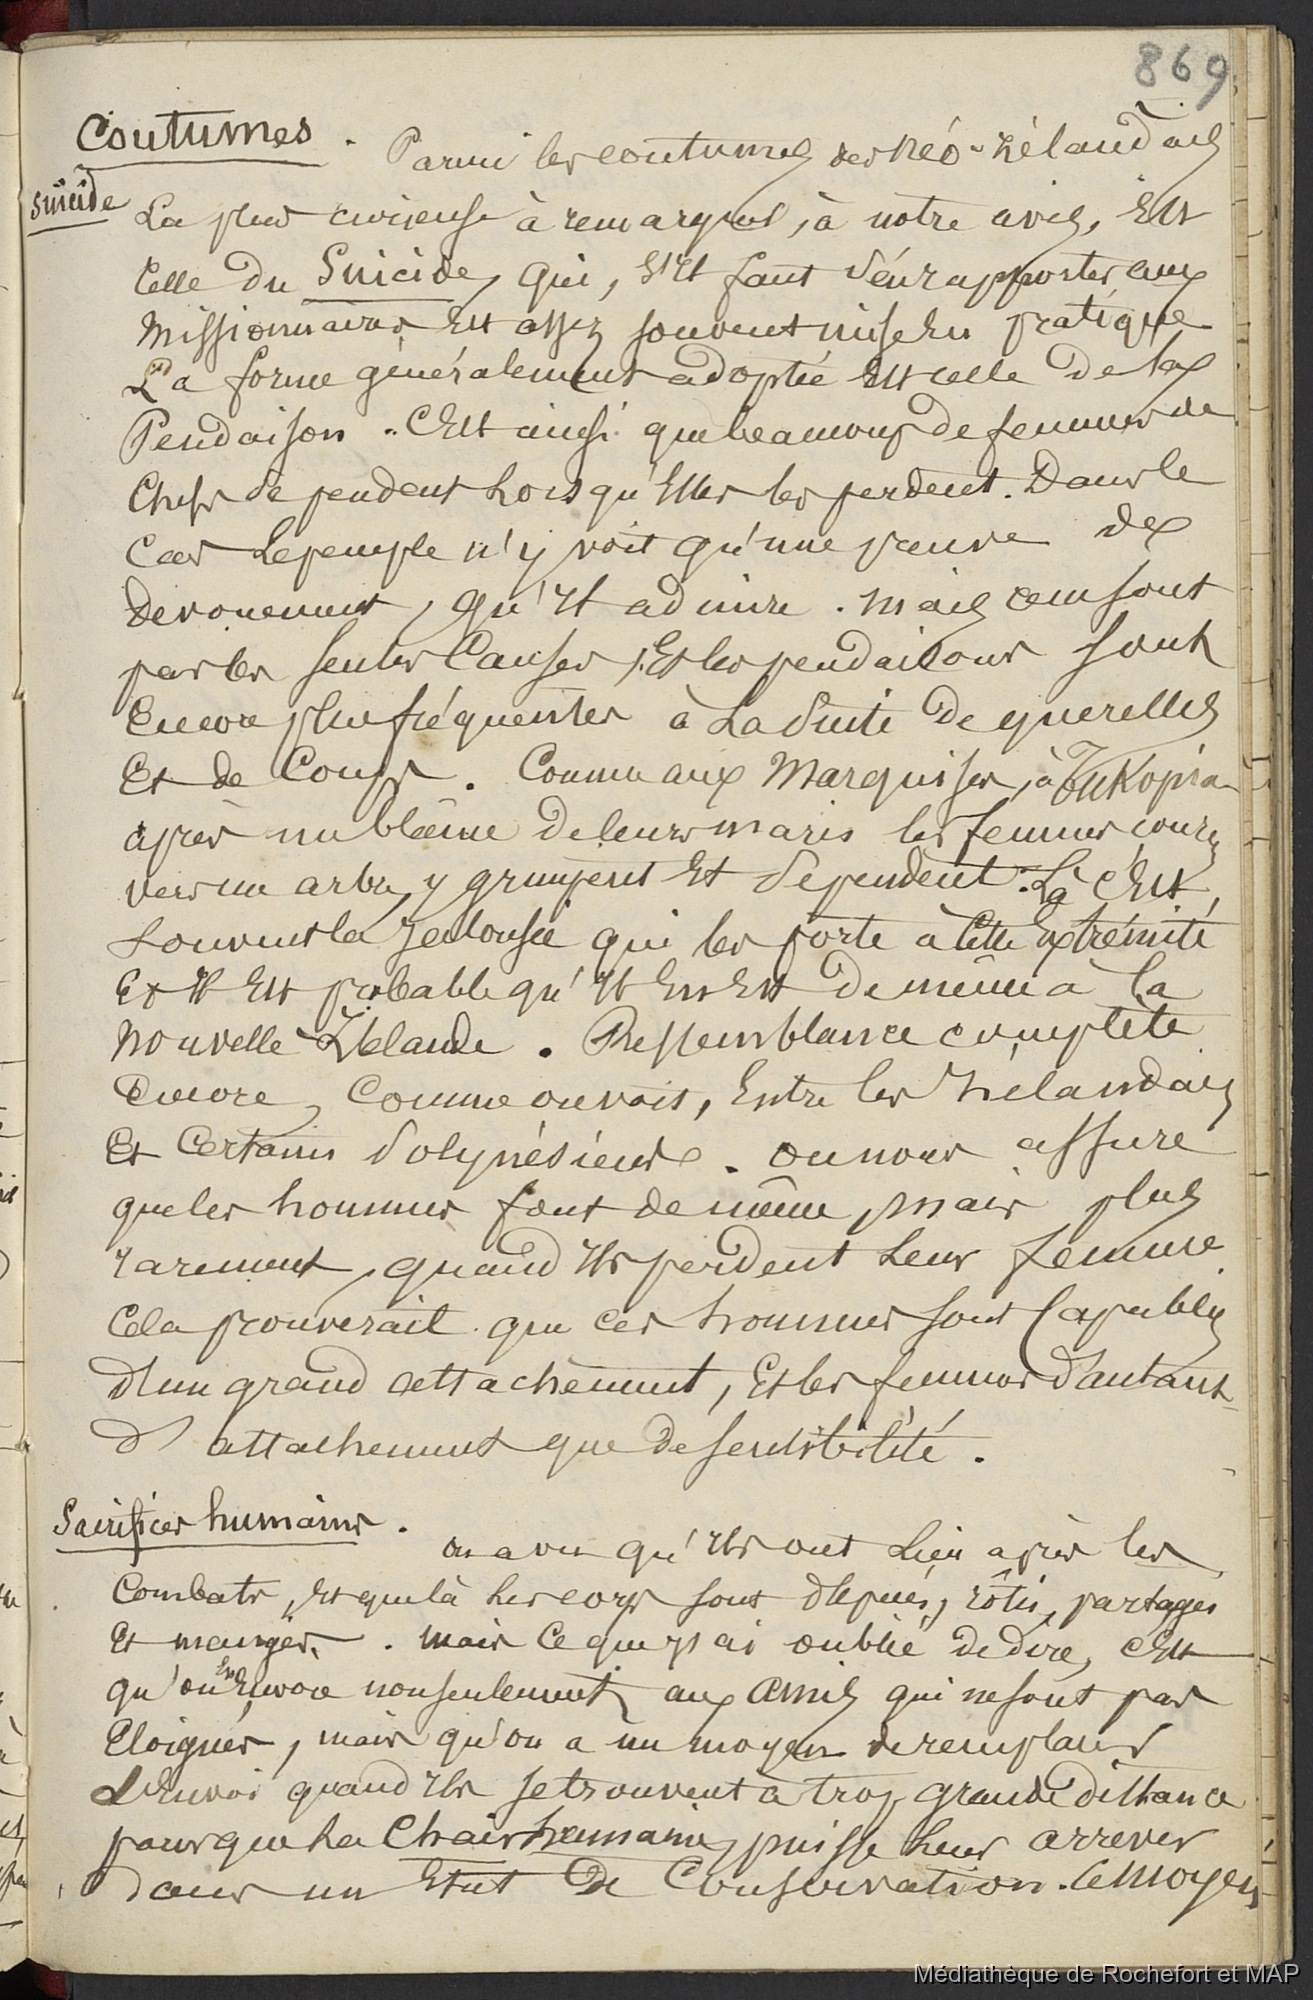 869
Coutumes. Parmi les coutumes des Néo-Zélandais
Suicide
La plus curieuse à remarquer, à notre avis, Est
Celle du Suicide, qui, s'il faut s'en rapporter aux
Missionnaires Est assez souvent mise en pratique
La forme généralement adoptée Est celle de la
Pendaison. C'Est ainsi que beaucoup de femmes de
Chefs se pendent Lorsqu'Elles les perdent. Dans le
Cas Le peuple n'y voit qu'une preuve de
devouement, qu'Il admire. Mais ce ne sont
pas les seules Causes, Et les pendaisons sont
Encore plus fréquentes à La Suite de querelles
Et de Coups. Comme aux Marquises, à Tukopia
après un blâme de leurs maris les femmes
vers un arbre, y grimpent Et se pendent. Là c'Est
Souvent la Jalousie qui les porte à Cette Extrémité
Et Il Est probable qu'Il En Est de même à la
Nouvelle Zélande. Ressemblance complète
Encore, Comme on voit, Entre les Zélandais
Et Certains Polynésiens. on nous assure
que les hommes font de même, mais plus
rarement, quand Ils perdent Leur femme
Cela prouverait que ces hommes sont Capables
d'un grand attachement, Et les femmes d'autant
d'attachement que de sensibilité.
Sacrifices humains.
on a vu qu'Ils ont Lieu après les
Combats, Et que là Les corps sont dépecés, rôtis, partagés
Et mangés. Mais Ce que j'ai oublié de dire, c'Est
qu'on En Envoie non seulement aux amis qui ne sont pas
Eloignés, mais qu'on a un moyen de remplacer
L'Envoi quand Ils se trouvent à trop grande distance
pour que La Chair humaine, puisse Leur arriver
dans un Etat de Conservation. Ce moyen
Médiathèque de Rochefort et MAP